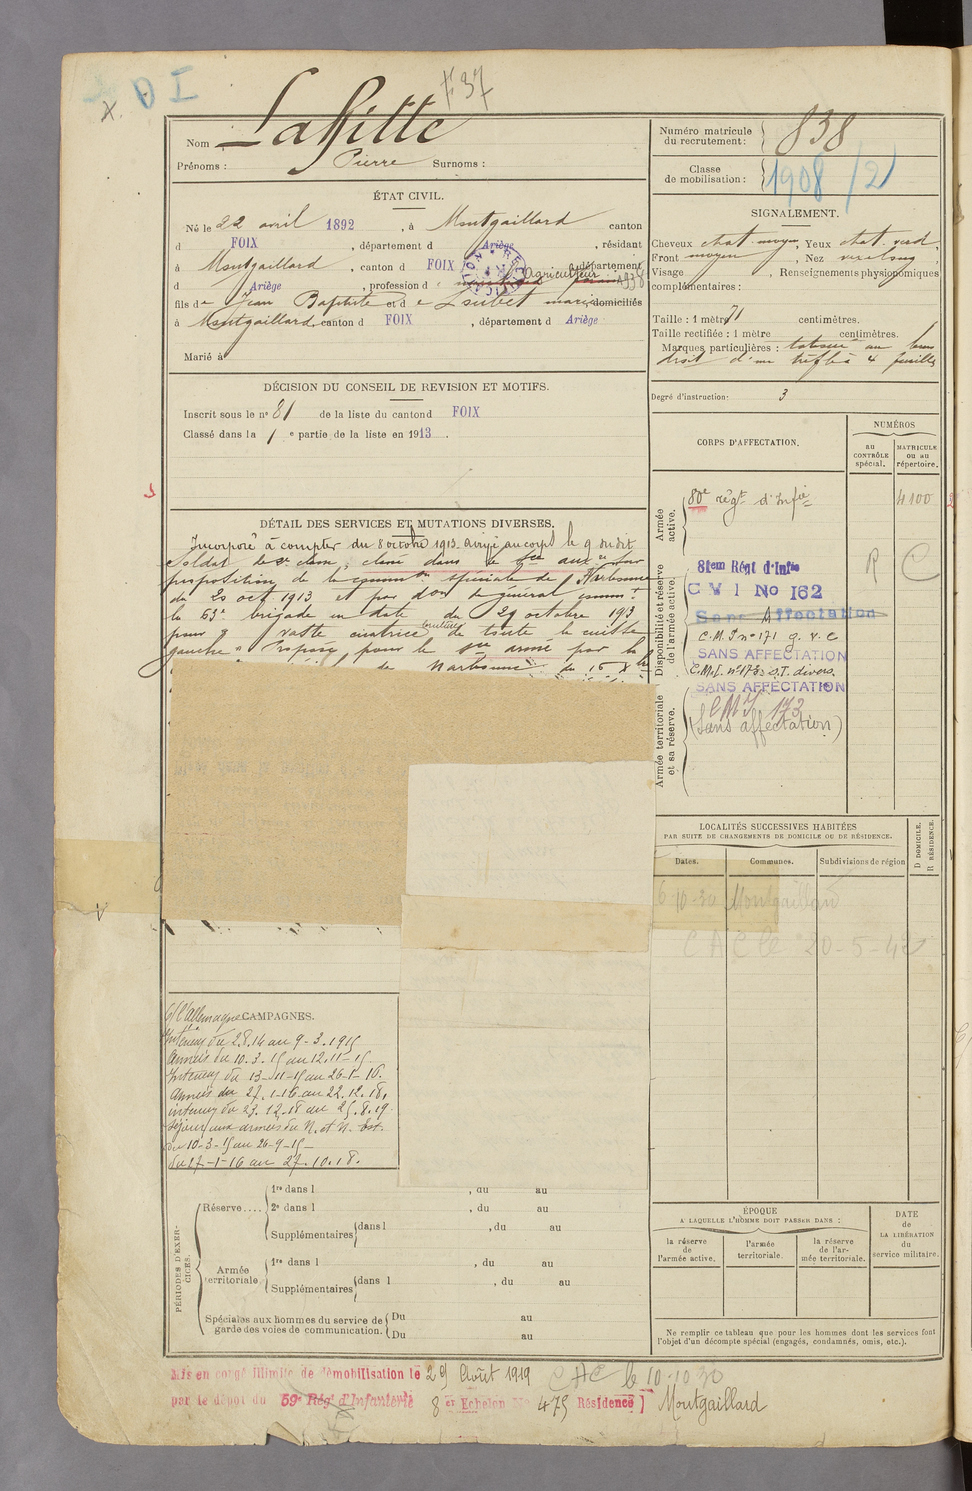 D I
F 37
Nom Laffitte
Prénoms : Pierre Surnoms :
Numéro matricule du recrutement : 838
Classe de mobilisation : 1908 /2
ÉTAT CIVIL.
Né le 22 avril 1892, à Montgaillard canton
d FOIX, département d Ariège, résidant
à Montgaillard, canton d FOIX, département
d Ariège, profession d Agriculteur 1938
fils de Jean Baptiste et d e Loubet marie domiciliés
à Montgaillard, canton d FOIX, département d Ariège
Marié à
SIGNALEMENT.
Cheveux chat. moyen, Yeux chat. verd,
Front moyen, Nez
Visage , Renseignements physiognomiques
complémentaires :
Taille : 1 mètre 71 centimètres.
Taille rectifiée : 1 mètre centimètres.
Marques particulières : tatoué au bras
droit d'un trèfle à 4 feuilles
Degré d'instruction: 3
DÉCISION DU CONSEIL DE REVISION ET MOTIFS.
Inscrit sous le n° 81 de la liste du canton d FOIX
Classé dans la 1 e partie de la liste en 1913.
CORPS D'AFFECTATION.
NUMÉROS
au CONTRÔLE spécial.
MATRICULE ou au répertoire.
Armée active.
80e régt d'Infie 4100
Disponibilité et réserve de l'armée active.
81em Régt d'Infie R C
C M I No 162
Sans Affectation
C.M.I n° 171 g.v.c
SANS AFFECTATION
C.M.I. n° 173 : S.T. divers.
SANS AFFECTATION
Armée territoriale et sa réserve.
CMI 173
(Sans affectation)
DÉTAIL DES SERVICES ET MUTATIONS DIVERSES.
Incorporé à compter du 8 octobre 1913. Arrivé au corps le 9 dudit
Soldat de 2e classe, classé dans le sce auxre sur
proposition de la common spéciale de Narbonne
du 20 oct 1913 et par don du général commt
la 63e brigade en date du 29 octobre 1913
pour " vaste cicatrice brûlure de toute la cuisse
gauche " Proposé pour le sce armé par la
de Narbonne du 16 Xbre
LOCALITÉS SUCCESSIVES HABITÉES
PAR SUITE DE CHANGEMENTS DE DOMICILE OU DE RÉSIDENCE.
Dates. Communes. Subdivisions de région
D DOMICILE. R RÉSIDENCE.
6-10-30 Montgaillard
C A C le 20-5-42
CAMPAGNES.
C/ l'Allemagne
Intérieur du 2.8.14 au 9-3.1915
Armées du 10.3.15 au 12.11-15
Intérieur du 13-11-15 au 26-1-16.
Armées du 27.1-16 au 22.12.18,
intérieur du 23.12.18 au 25.8.19
Séjour aux armées du N. et N. Est.
Du 10-3-15 au 26-9-15-
Du 27-1-16 au 27.10.18.
PÉRIODES D'EXERCICES.
Réserve....
1re dans l , du au
2e dans l , du au
Supplémentaires dans l , du au
Armée territoriale
1re dans l , du au
Supplémentaires dans l , du au
Spéciales aux hommes du service de garde des voies de communication.
Du au
Du au
ÉPOQUE
A LAQUELLE L'HOMME DOIT PASSER DANS :
la réserve de l'armée active.
l'armée territoriale.
la réserve de l'armée territoriale.
DATE de LA LIBÉRATION du service militaire.
Ne remplir ce tableau que pour les hommes dont les services font
l'objet d'un décompte spécial (engagés, condamnés, omis, etc.).
Mis en congé illimité de démobilisation le 29 Août 1919 C A C le 10-10 30
par le dépôt du 59e Rég. d'Infanterie 8 e Echelon No 475 Résidence ] Montgaillard